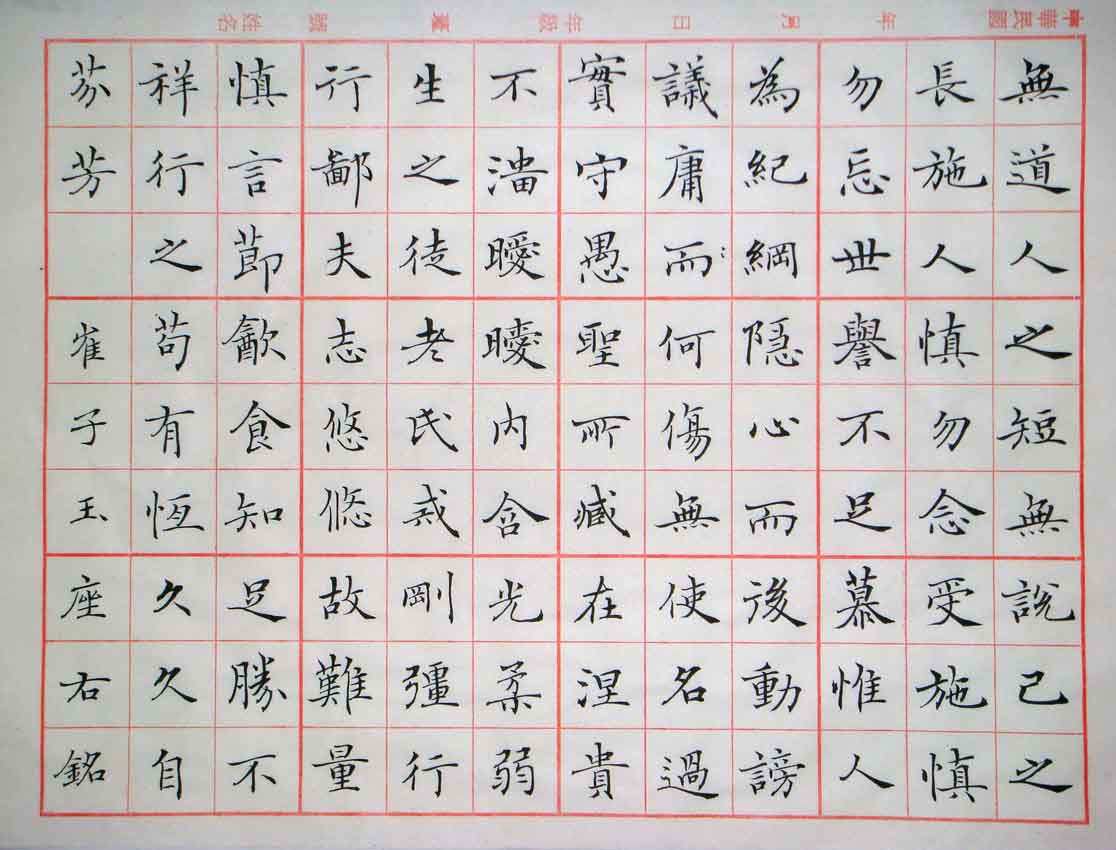 中華民國 年 月 日 年級 號 姓名
無道人之短無說己之
長施人慎勿念受施慎
勿忘世譽不足慕惟人
為紀綱隱心而後動謗
議庸而何傷無使名過
實守愚聖所臧在涅貴
不淄曖曖內含光柔弱
生之徒老氏戒剛彊行
行鄙夫志悠悠故難量
慎言節飲食知足勝不
祥行之苟有恆久久自
芬芳 崔子玉座右銘